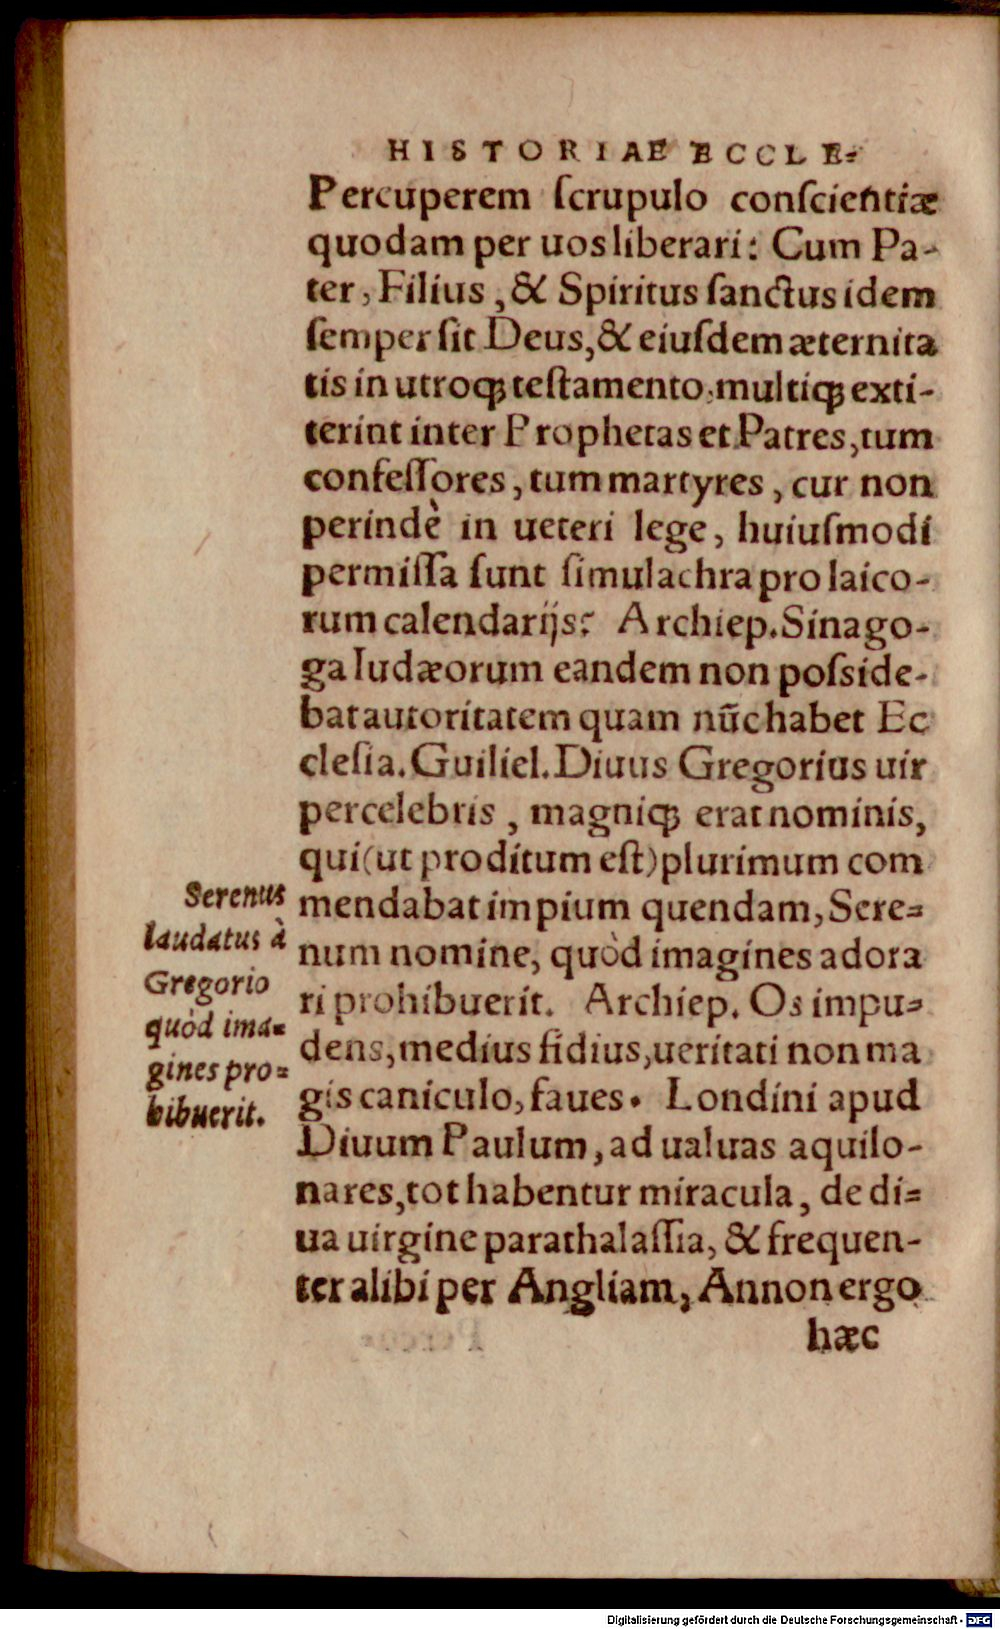 HISTORIAE ECCLE-
Percuperem ſcrupulo conſcientiæ
quodam per uos liberari: Cum Pa-
ter, Filius, & Spiritus ſanctus idem
ſemper ſit Deus, & eiuſdem æternita
tis in utroqꝫ teſtamento, multiqꝫ exti-
terint inter Prophetas et Patres, tum
confeſſores, tum martyres, cur non
perindè in ueteri lege, huiuſmodi
permiſſa ſunt ſimulachra pro laico-
rum calendarijs? Archiep. Sinago-
ga Iudæorum eandem non poſside-
bat autoritatem quam nũc habet Ec
cleſia. Guiliel. Diuus Gregorius uir
percelebris, magniqꝫ erat nominis,
qui (ut proditum eſt) plurimum com
mendabat impium quendam, Sere-
num nomine, quòd imagines adora
ri prohibuerit. Archiep. Os impu-
dens, medius fidius, ueritati non ma
gis caniculo, faues. Londini apud
Diuum Paulum, ad ualuas aquilo-
nares, tot habentur miracula, de di-
ua uirgine parathalaſſia, & frequen-
ter alibi per Angliam, Annon ergo
hæc
Serenus
laudatus à
Gregorio
quòd ima-
gines pro-
hibuerit.
Digitalisierung gefördert durch die Deutsche Forschungsgemeinschaft - DFG